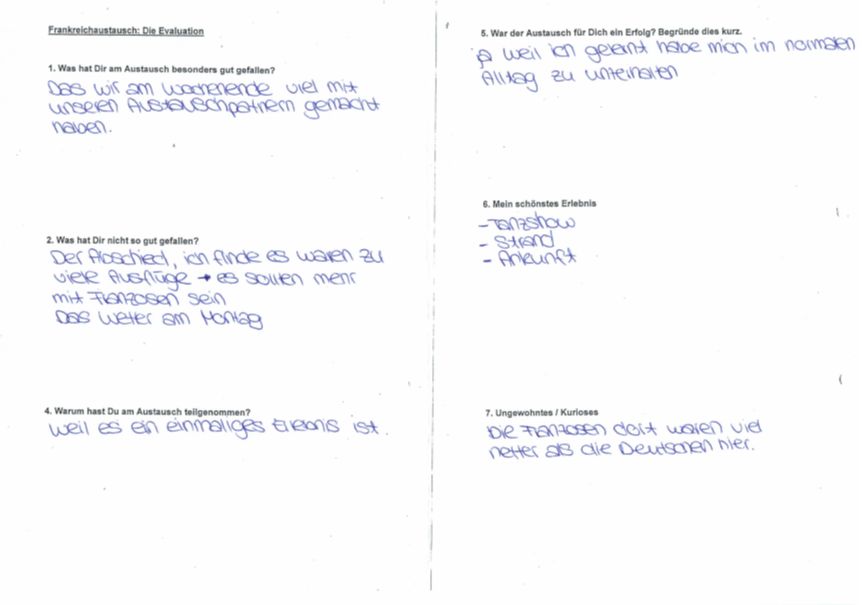 Frankreichaustausch: Die Evaluation
1. Was hat Dir am Austausch besonders gut gefallen?
Das wir am wochenende viel mit
unseren Austauschpartnern gemacht
haben.
2. Was hat Dir nicht so gut gefallen?
Der Abschied, ich finde es waren zu
viele Ausflüge → es sollten mehr
mit Franzosen sein
Das Wetter am Montag
4. Warum hast Du am Austausch teilgenommen?
weil es ein einmaliges Erlebnis ist.
5. War der Austausch für Dich ein Erfolg? Begründe dies kurz.
ja weil ich gelernt habe mich im normalen
Alltag zu unterhalten
6. Mein schönstes Erlebnis
- Tanzshow
- Strand
- Ankunft
7. Ungewohntes / Kurioses
Die Franzosen dort waren viel
netter als die Deutschen hier.